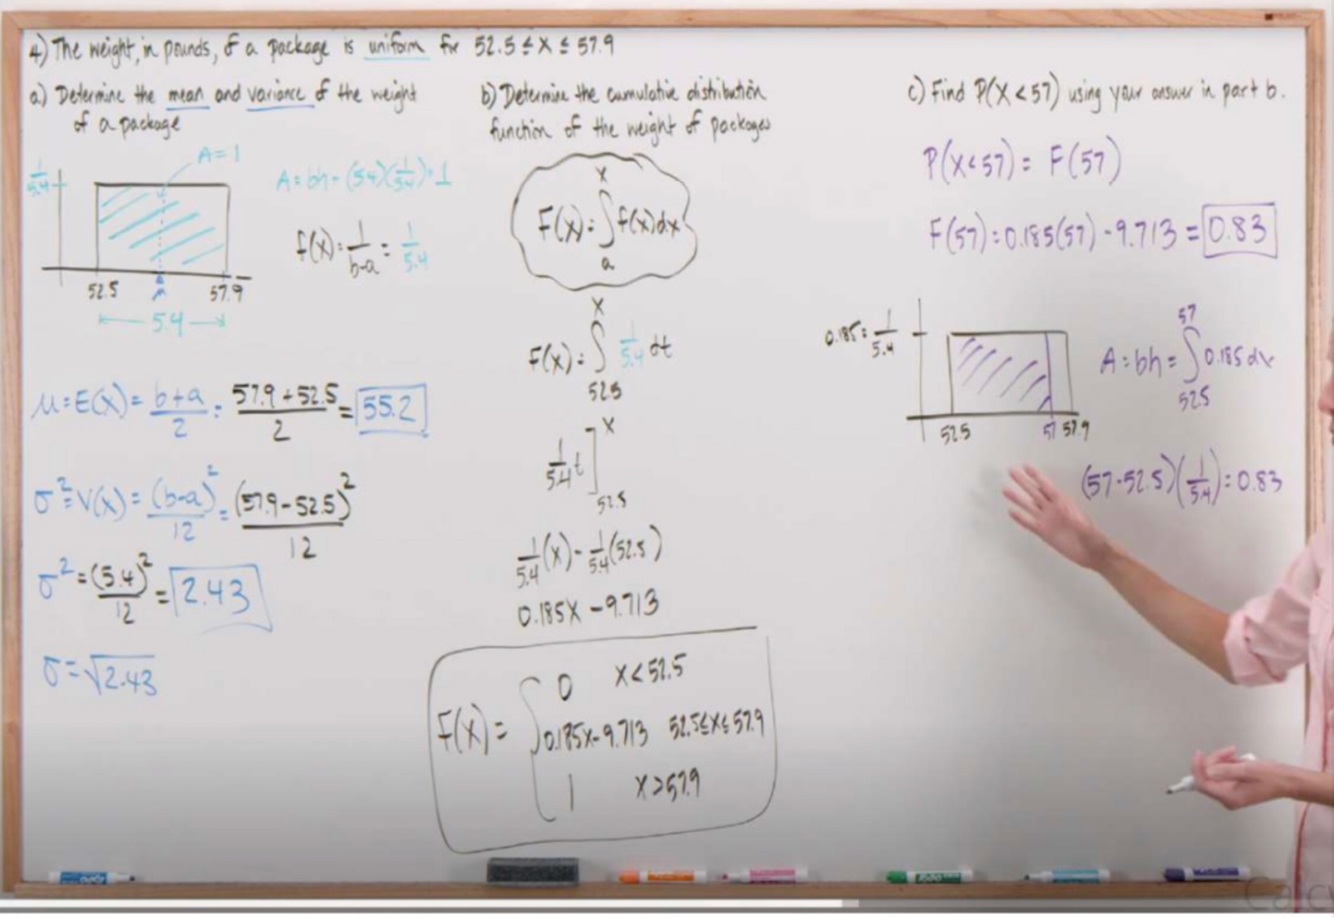 4) The weight, in pounds, of a package is uniform for 52.5 ≤ X ≤ 57.9
a.) Determine the mean and variance of the weight
of a package
A=1
1/5.4
A = bh = (5.4)(1/5.4) = 1
f(x) = 1/(b-a) = 1/5.4
52.5 57.9
5.4
μ = E(X) = (b+a)/2 = (57.9+52.5)/2 = 55.2
σ² = V(X) = (b-a)²/12 = (57.9-52.5)²/12
σ² = (5.4)²/12 = 2.43
σ = √2.43
b) Determine the cumulative distribution
function of the weight of packages
F(x) = ∫ₐˣ f(x)dx
F(x) = ∫_52.5^x 1/5.4 dt
1/5.4 t]_52.5^x
1/5.4(x) - 1/5.4(52.5)
0.185x - 9.713
F(x) = { 0 x<52.5
0.185x-9.713 52.5≤x≤57.9
1 x>57.9
c) Find P(X<57) using your answer in part b.
P(X<57) = F(57)
F(57) = 0.185(57) - 9.713 = 0.83
0.185 = 1/5.4
52.5 57 57.9
A = bh = ∫_52.5^57 0.185dx
(57-52.5)(1/5.4) = 0.83